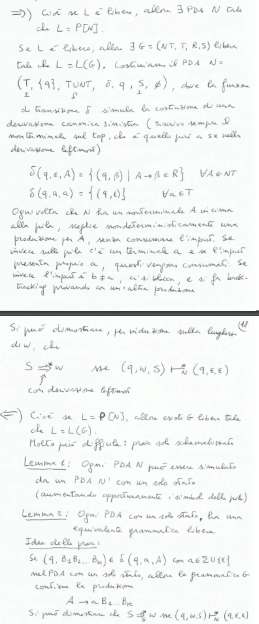 ⇒) Cioè se L è libero, allora ∃ PDA N tale
che L = P[N].
Se L è libero, allora ∃ G = (NT, T, R, S) libera
tale che L = L(G). Costruiamo il PDA N =
(T, {q}, T∪NT, δ, q, S, ∅), dove la funzione
Σ Γ ⊥
di transizione δ simula la costruzione di una
derivazione canonica sinistra (riscrivo sempre il
nonterminale sul top, che è quello più a sx nella
derivazione leftmost)
δ(q, ε, A) = {(q, β) | A → β ∈ R} ∀A ∈ NT
δ(q, a, a) = {(q, ε)} ∀a ∈ T
Ogni volta che N ha un nonterminale A in cima
alla pila, sceglie nondeterministicamente una
produzione per A, senza consumare l'input. Se
invece sulla pila c'è un terminale a e se l'input
presenta proprio a, questi vengono consumati. Se
invece l'input è b ≠ a, ci si blocca, e si fa back-
tracking provando con un'altra produzione
Si può dimostrare, per induzione sulla lunghezza
di w, che
S ⇒* w sse (q, w, S) ⊢*N (q, ε, ε)
con derivazione leftmost
⇐) Cioè se L = P[N], allora esiste G libera tale
che L = L(G).
Molto più difficile: prova solo schematizzata
Lemma 1: Ogni PDA N può essere simulato
da un PDA N' con un solo stato
(aumentando opportunamente i simboli della pila)
Lemma 2: Ogni PDA con un solo stato, ha una
equivalente grammatica libera
Idea della prova:
Se (q, B1B2...BK) ∈ δ(q, a, A) con a ∈ Σ∪{ε}
nel PDA con un solo stato, allora la grammatica G
contiene la produzione
A → aB1...BK
Si può dimostrare che S ⇒*G w sse (q, w, S) ⊢*N (q, ε, ε)